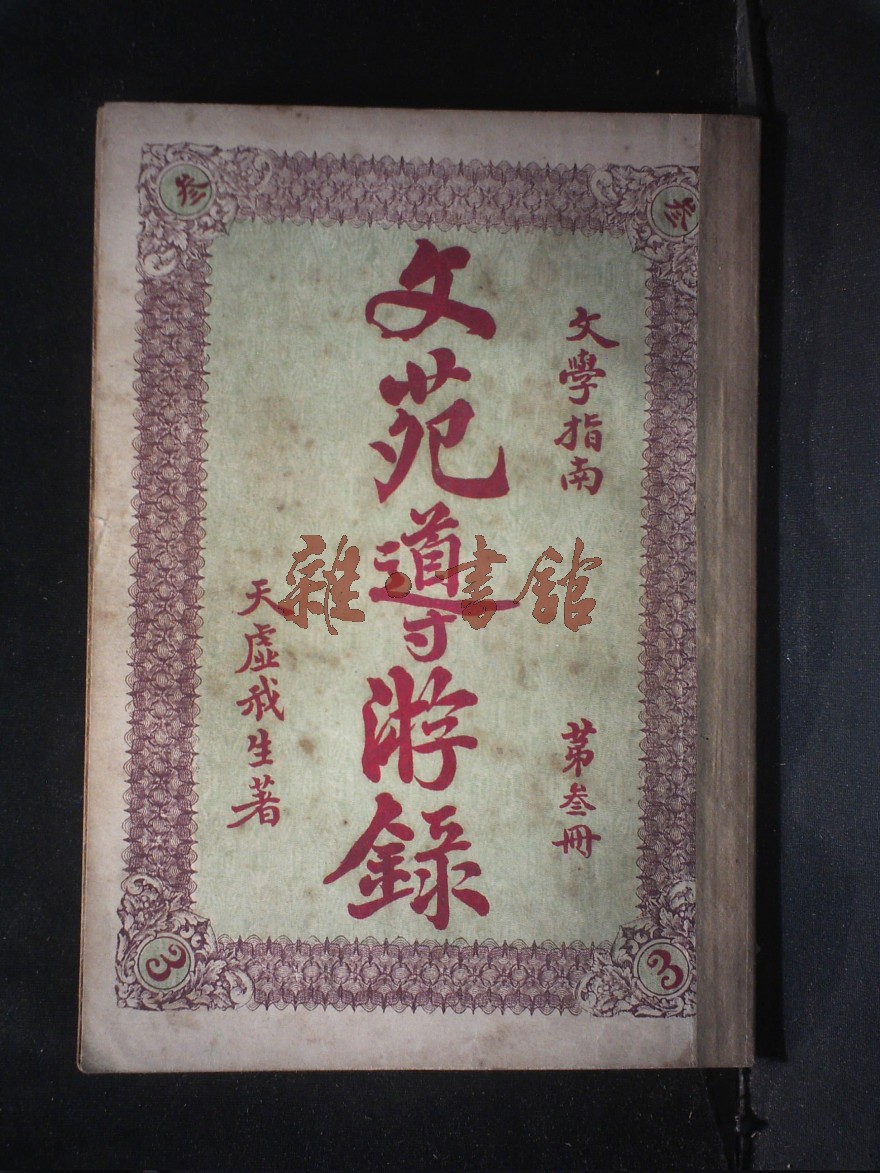 叁
叁
文學指南
第叁冊
文苑導游錄
天虛我生著
雜·書館
3
3